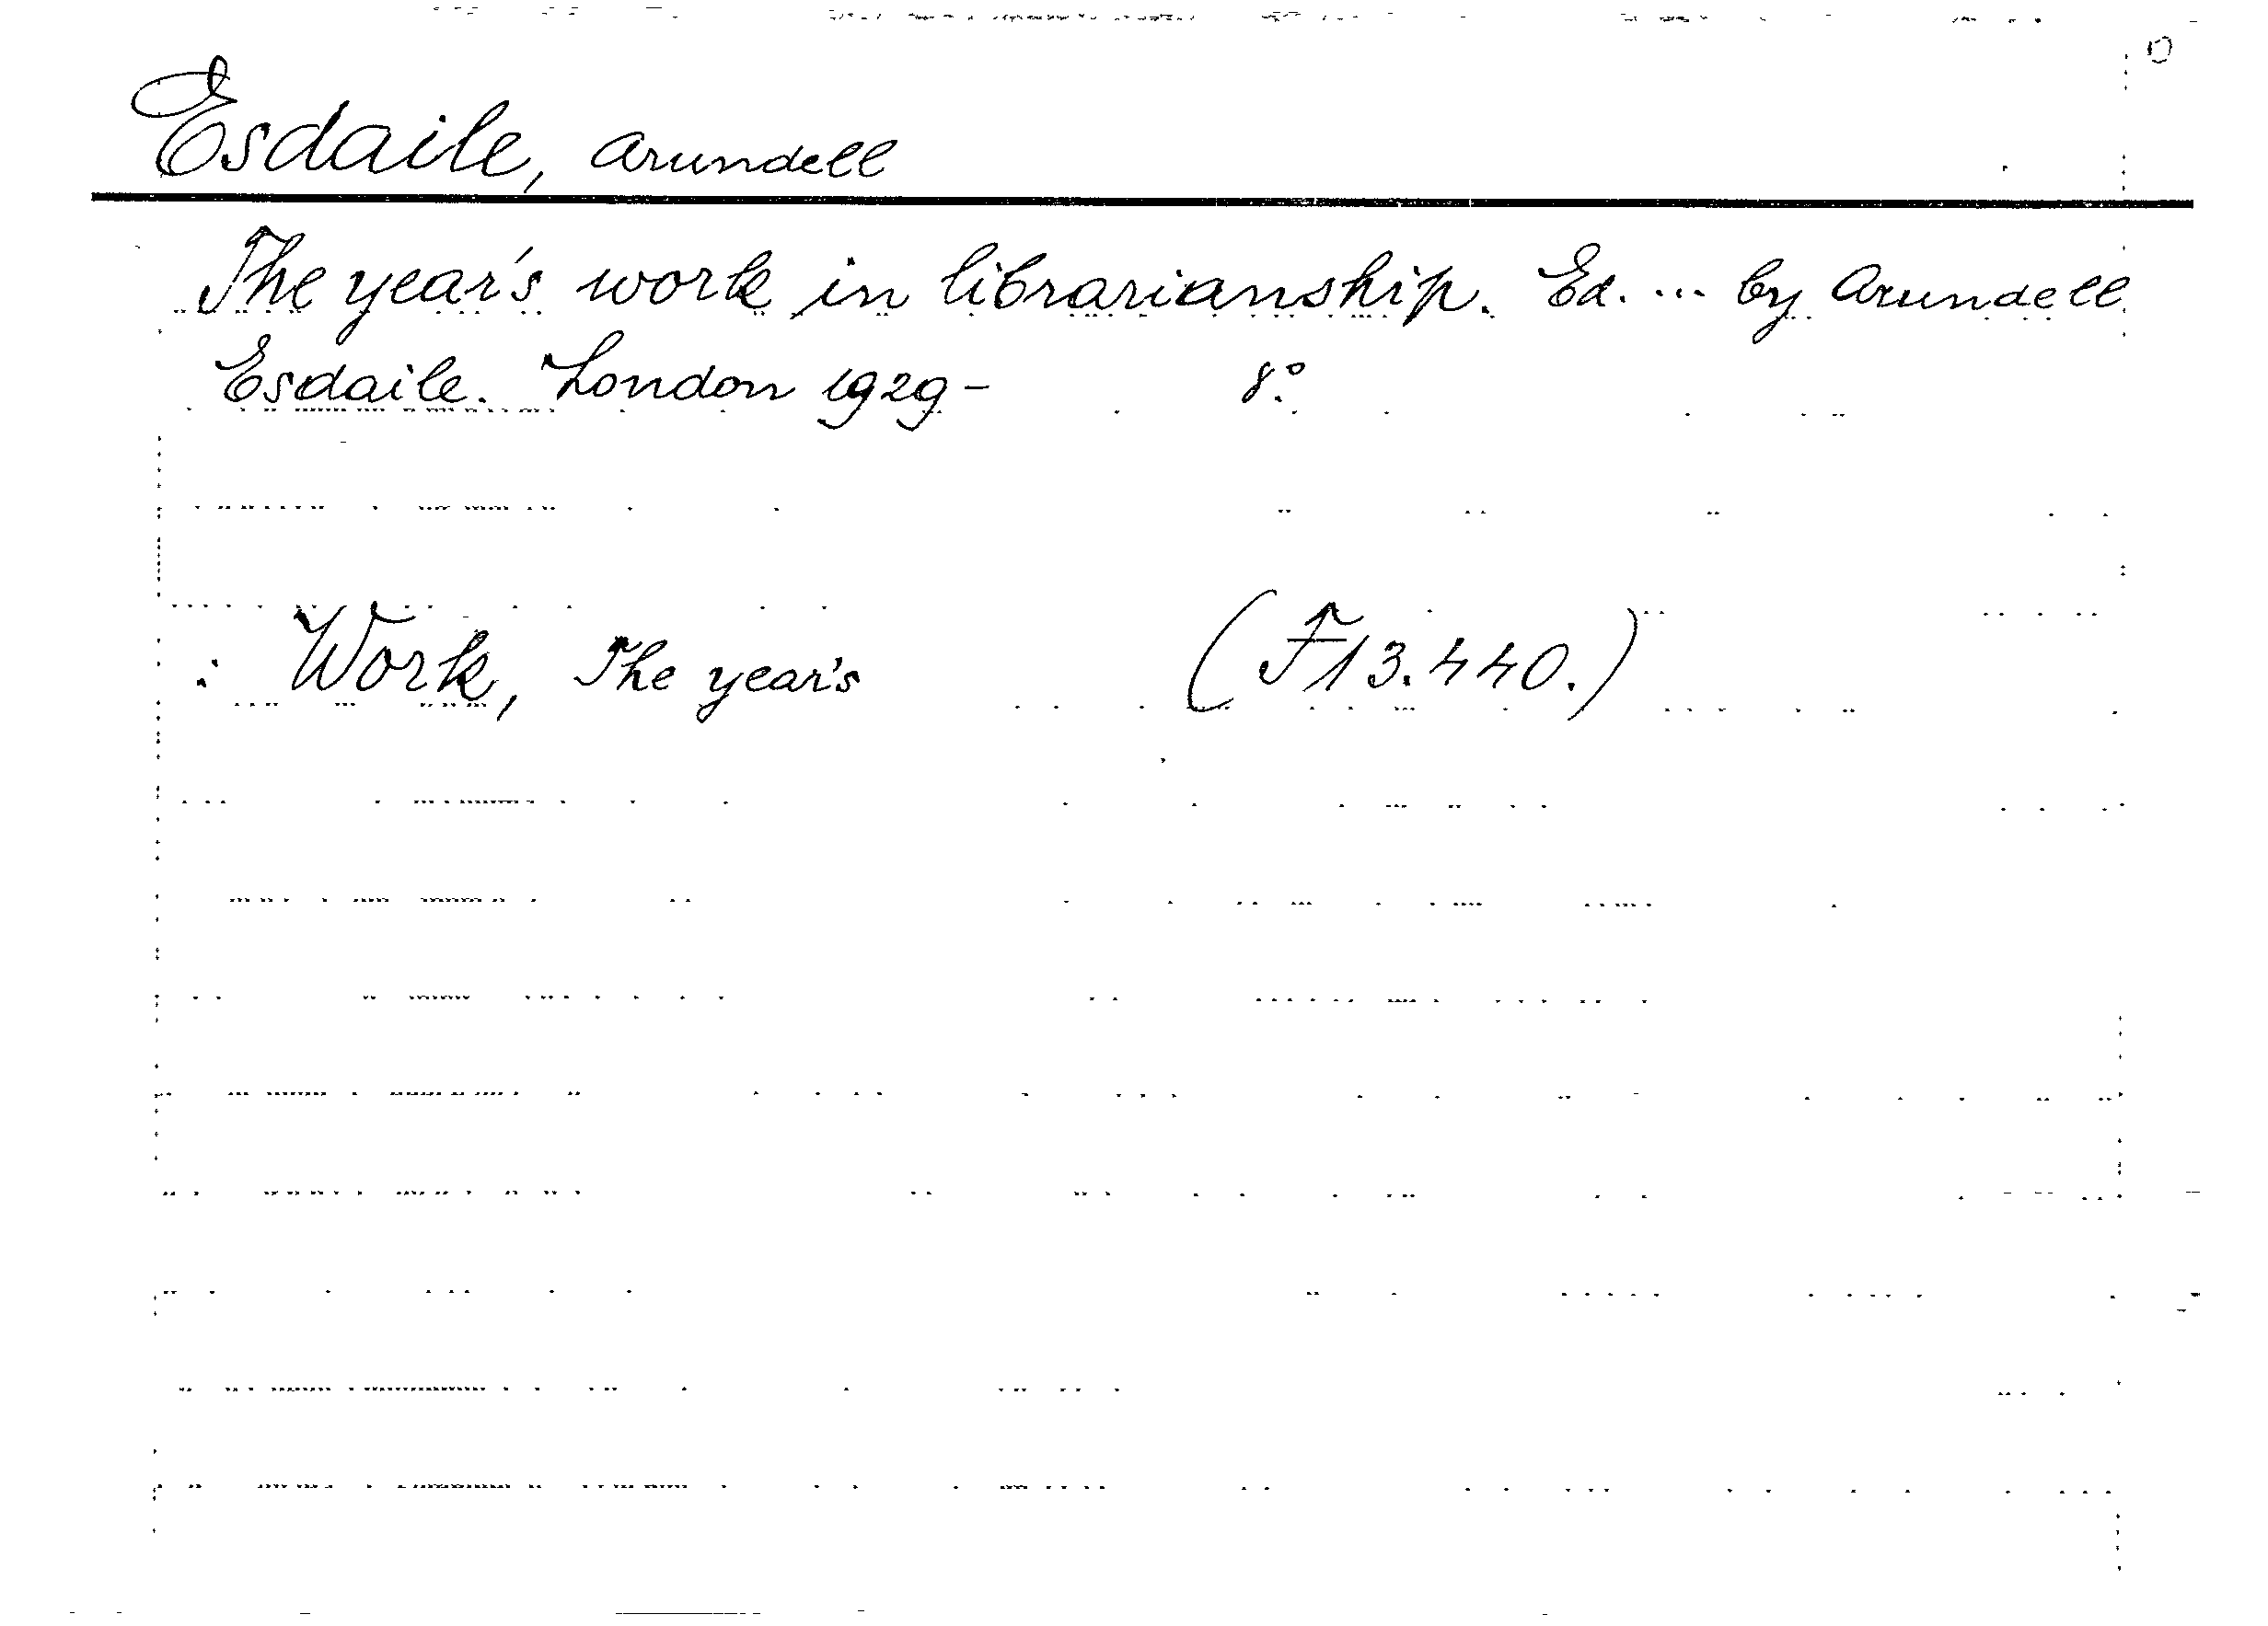 Esdaile, Arundell
The year's work in librarianship. Ed. ... by Arundell
Esdaile. London 1929- 8º.
: Work, The year's (F13.440.)